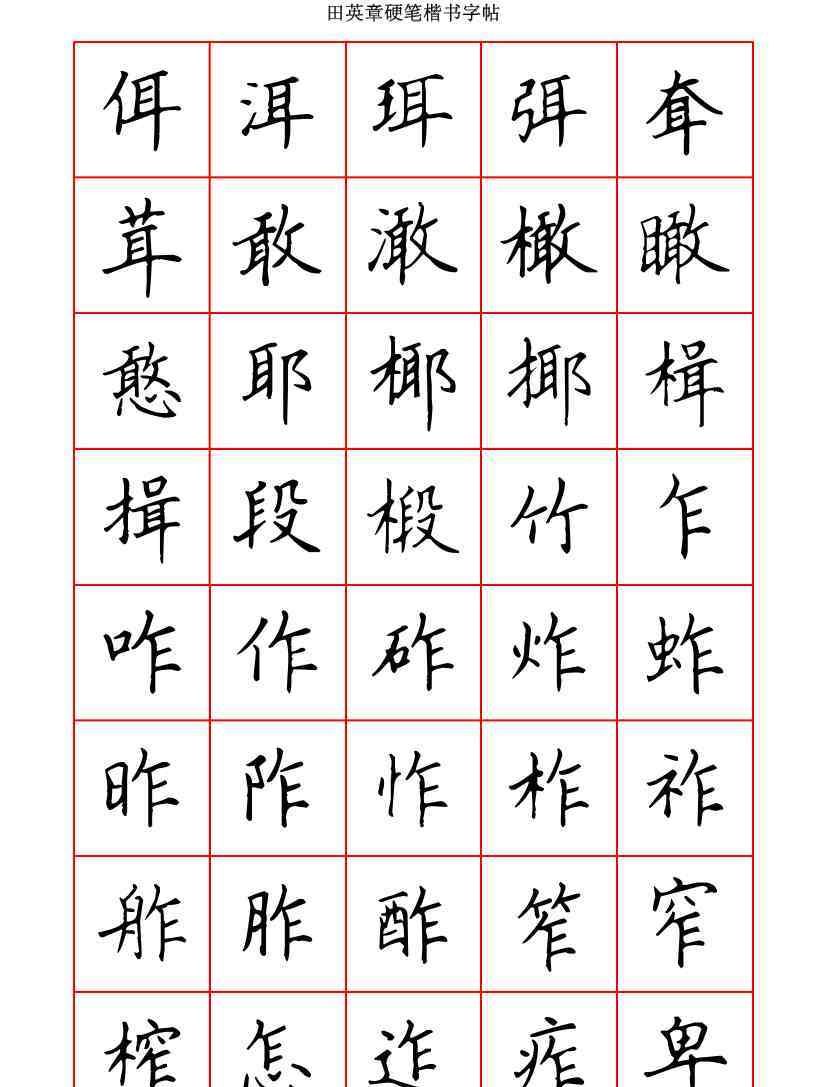 田英章硬笔楷书字帖
佴 洱 珥 弭 耷
茸 敢 澉 橄 瞰
憨 耶 椰 揶 楫
揖 段 椴 竹 乍
咋 作 砟 炸 蚱
昨 阼 怍 柞 祚
舴 胙 酢 笮 窄
榨 怎 迮 痄 卑